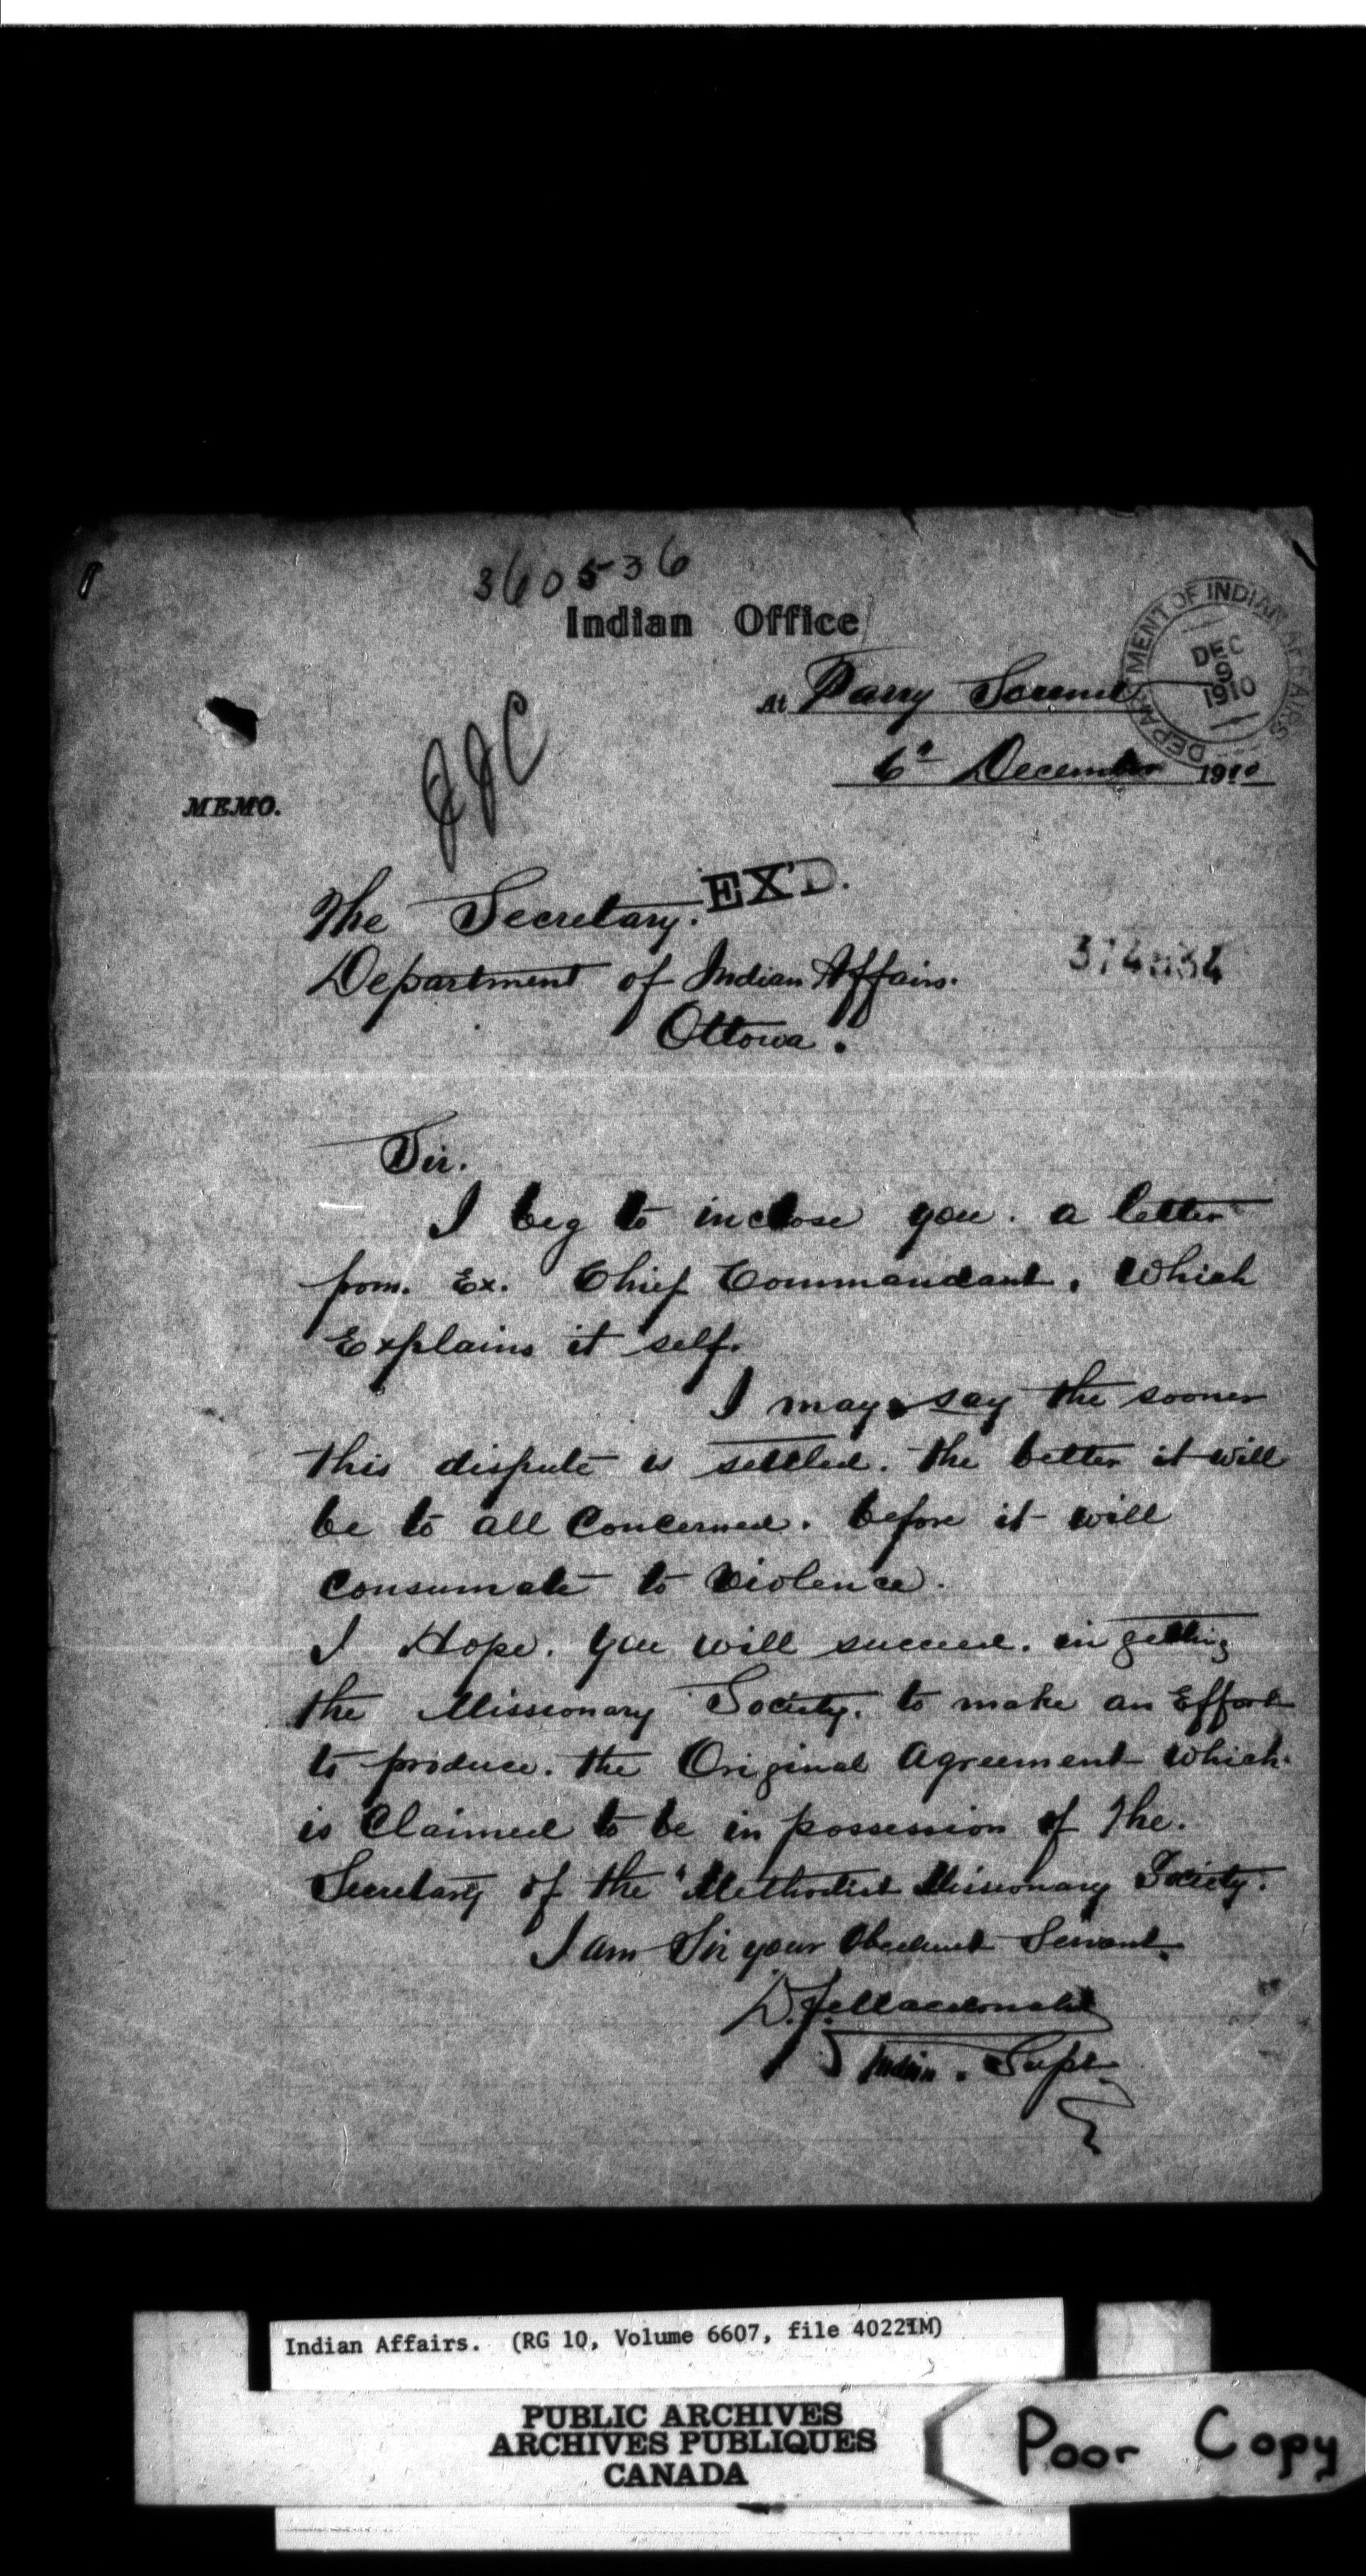 360536
Indian Office
DEPARTMENT OF INDIAN AFFAIRS
DEC
9
1910
At Parry Sound
6th December 1910
JJC
MEMO.
EX'D.
The Secretary.
Department of Indian Affairs.
Ottowa.
Sir.
I beg to inclose you. a letter
from. Ex. Chief Commandant, Which
Explains it self.
I may say the sooner
this dispute is settled. the better it will
be to all Concerned. before it will
Consumate to Violence.
I Hope. you will succeed. in getting
the Missionary Society. to make an Effort
to produce. the Original Agreement Which.
is Claimed to be in possession of the.
Secretary of the Methodist Missionary Society.
I am Sir your Obedient Servant.
D. F. Macdonald
Indian. Supt
Indian Affairs. (RG 10, Volume 6607, file 40221M)
PUBLIC ARCHIVES
ARCHIVES PUBLIQUES
CANADA
Poor Copy